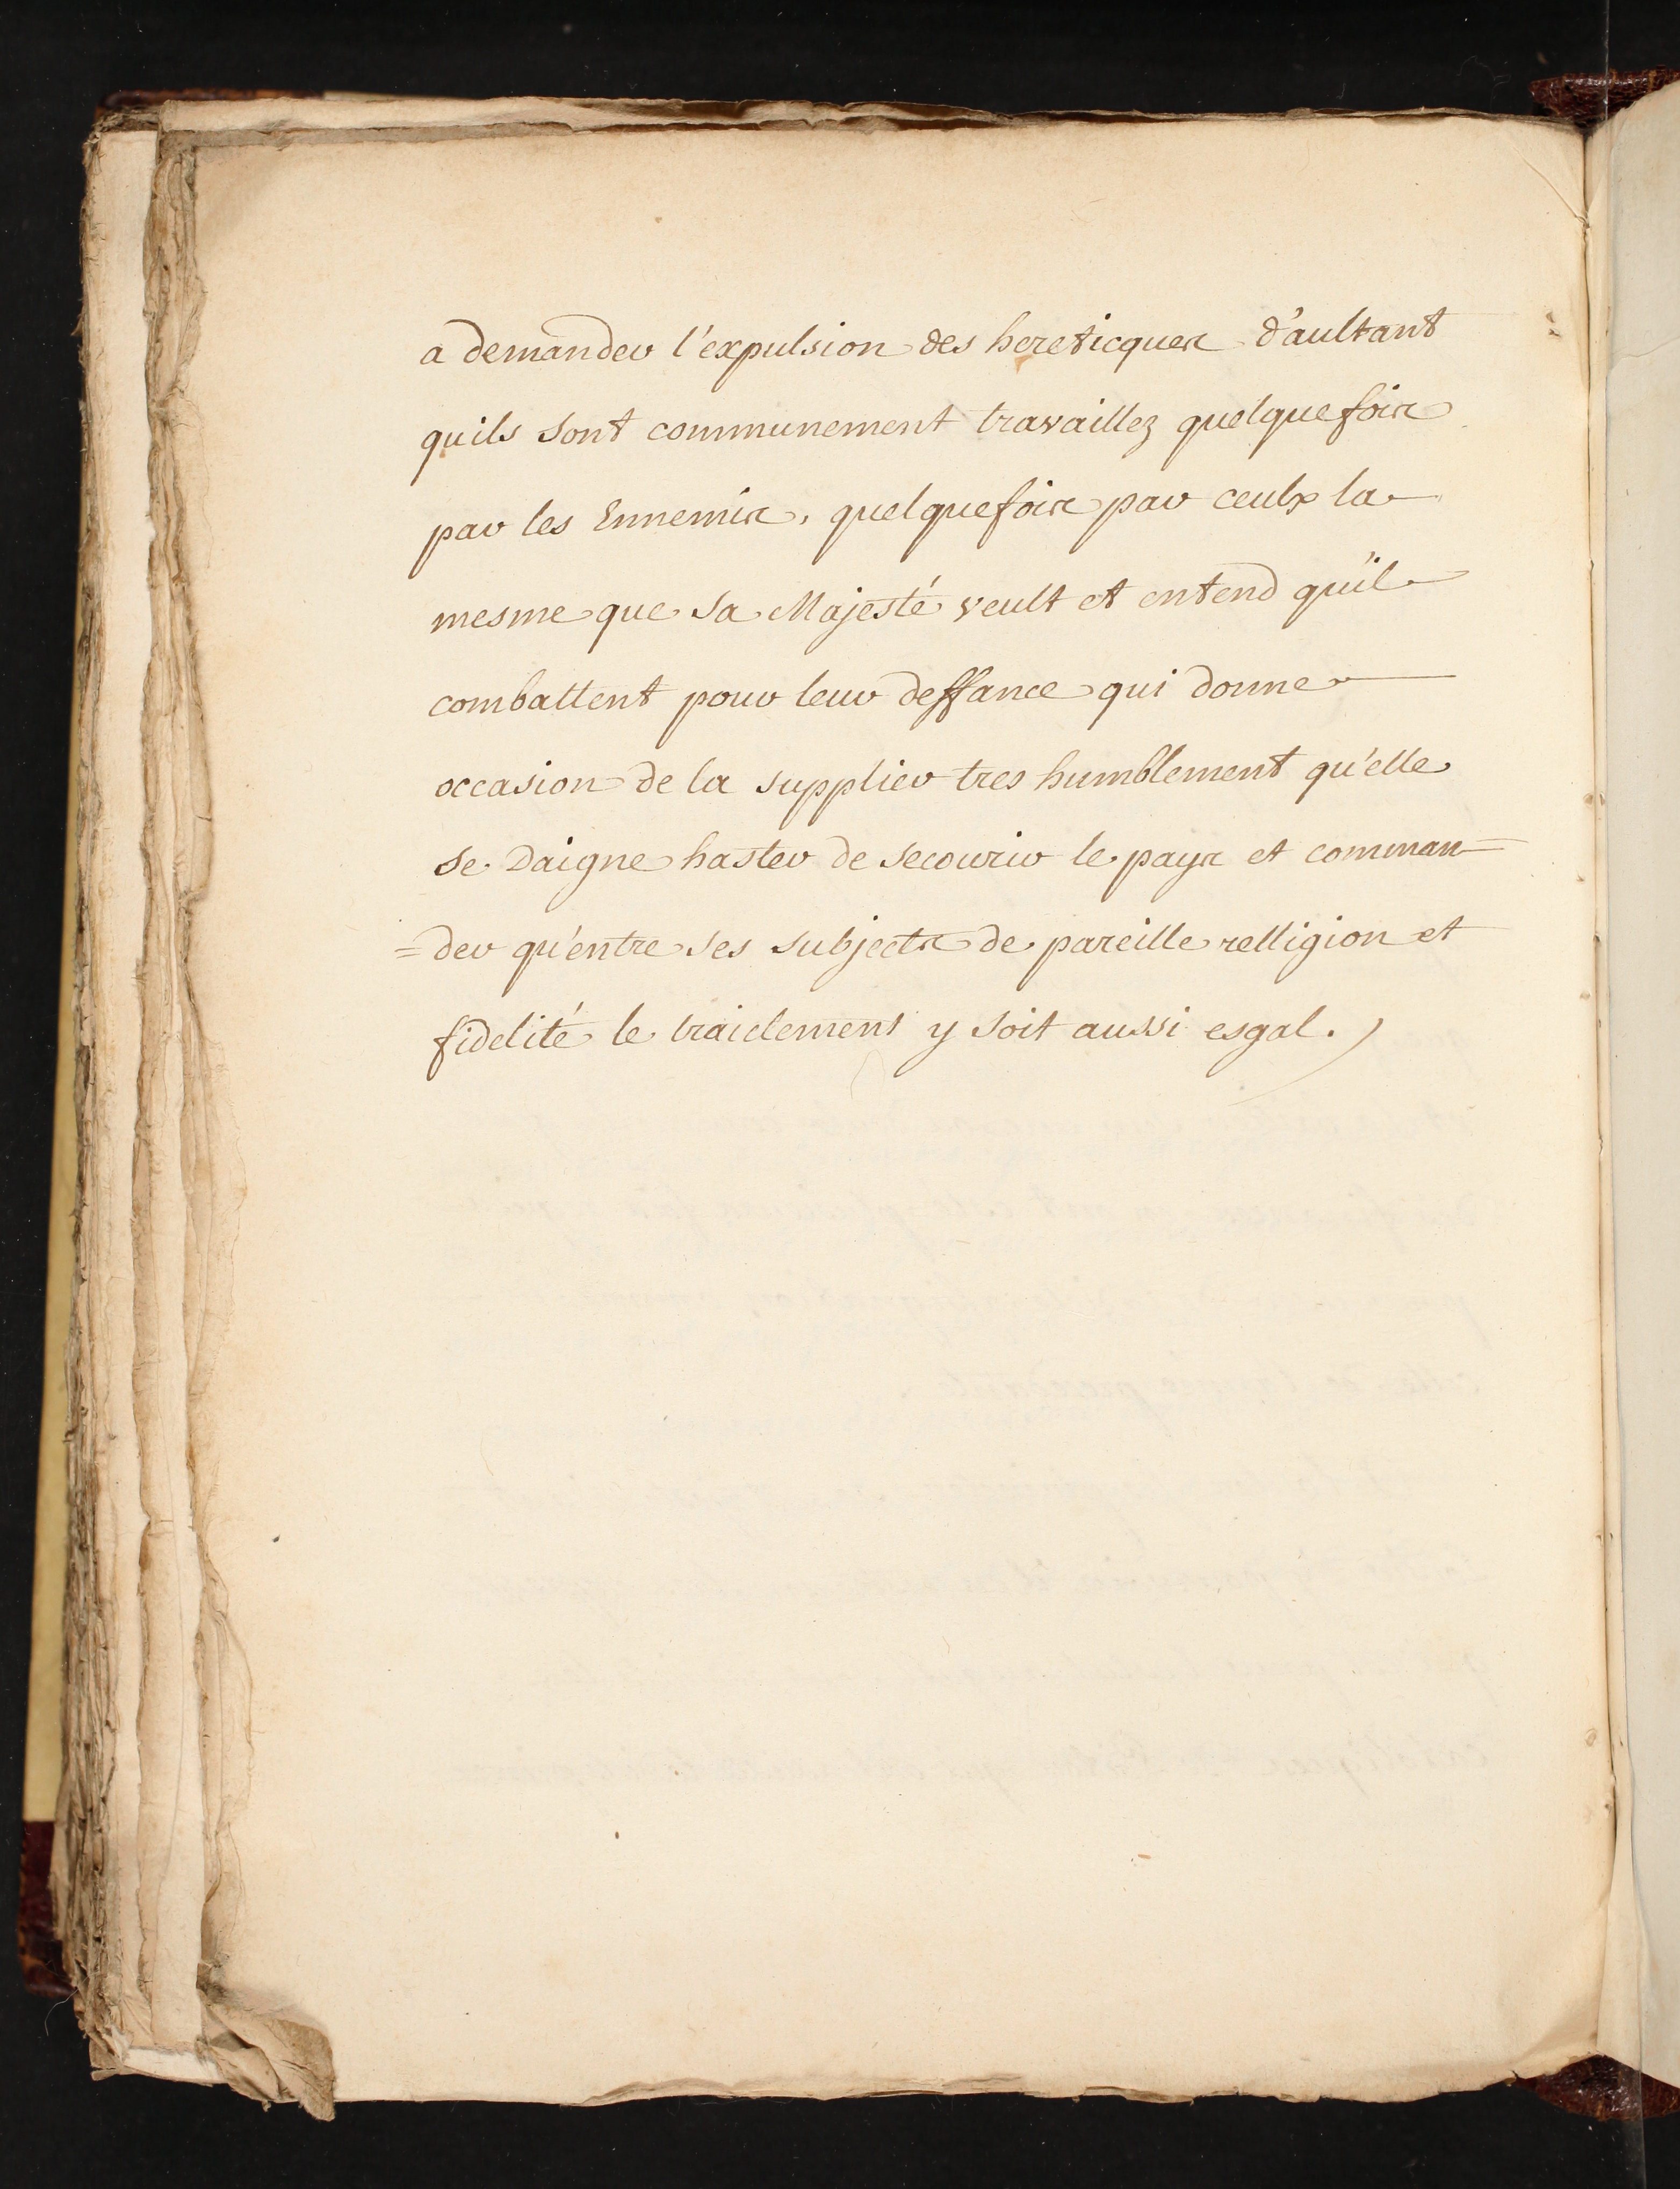 a demander l'expulsion des hereticques d'aultant
quils sont communement travaillez quelquefois
par les Ennemis, quelquefois par ceulx la
mesme que sa Majesté veult et entend qu'il
combattent pour leur deffance qui donne
occasion de la supplier tres humblement qu'elle
se daigne haster de secourir le pays et comman=
=der qu'entre ses subjects de pareille relligion et
fidelité le traictement y soit aussi esgal.